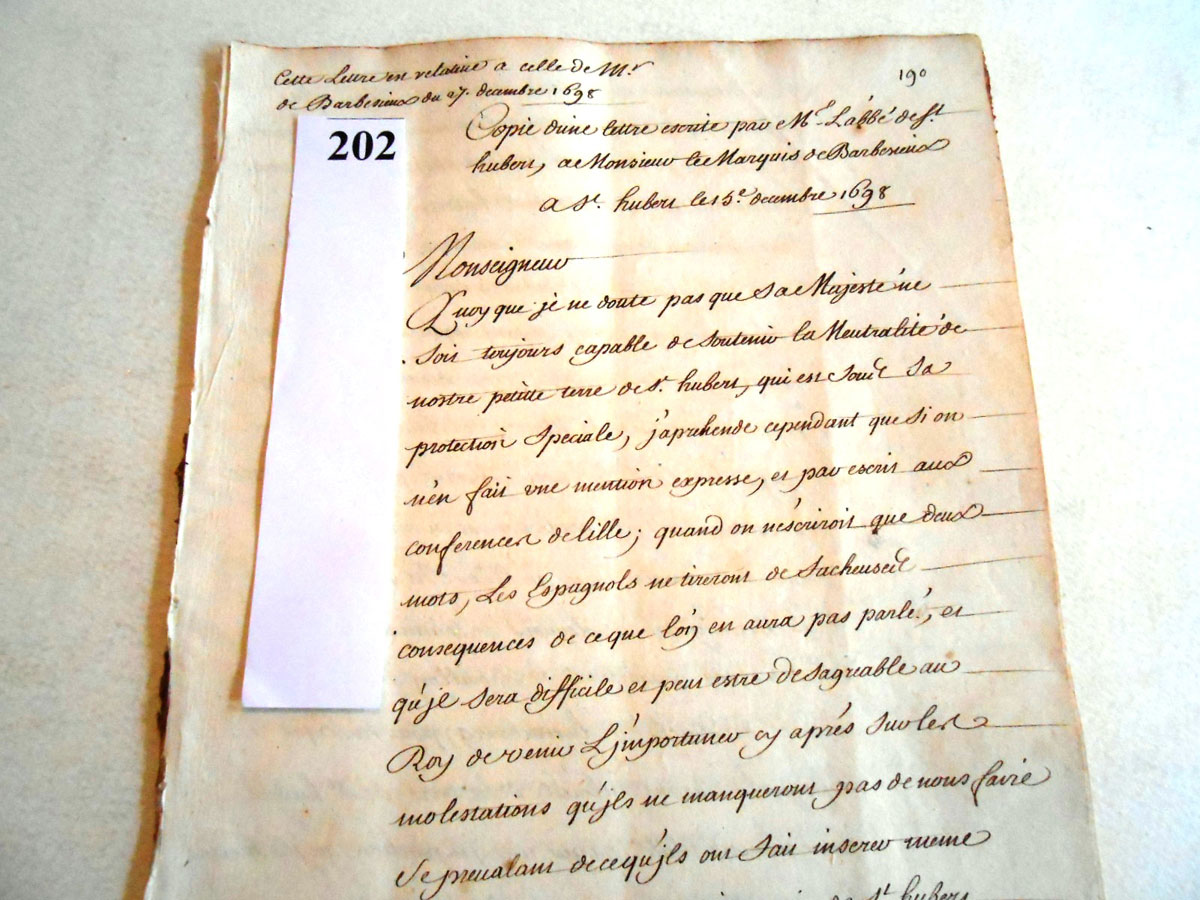 Cette Lettre en relative a celle de Mr
de Barbesieux du 27. decembre 1698
190
202
Copie d'une lettre escrite par Mr. L'abbé de St.
hubert, a Monsieur le Marquis de Barbesieux
a St. hubert le 15e. decembre 1698
Monseigneur
Quoy que je ne doute pas que Sa Majesté ne
soit toujours capable de soutenir la Neutralité de
nostre petitte terre de St. hubert, qui est sous Sa
protection Speciale, j'aprehende cependant que si on
n'en fait une mention expresse, et par escrit aux
conferences de lille; quand on n'escriroit que deux
mots, Les Espagnols ne tireront de facheuses
consequences de ce que l'on en aura pas parlé, et
qu'il sera difficile et peut estre desagreable au
Roy de venir L'importuner cy aprés sur les
molestations qu'ils ne manqueront pas de nous faire
Se prevalant de ce qu'ils ont fait inserer meme
de St. hubert